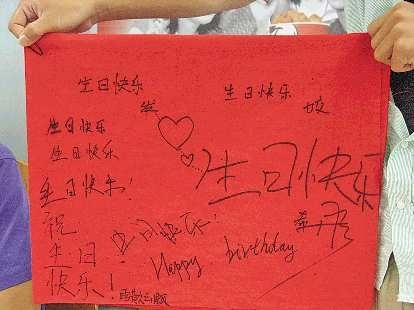 生日快乐
生日快乐
生日快乐
生日快乐
生日快乐！
生日快乐
祝
生日
快乐！
生日快乐！
Happy birthday